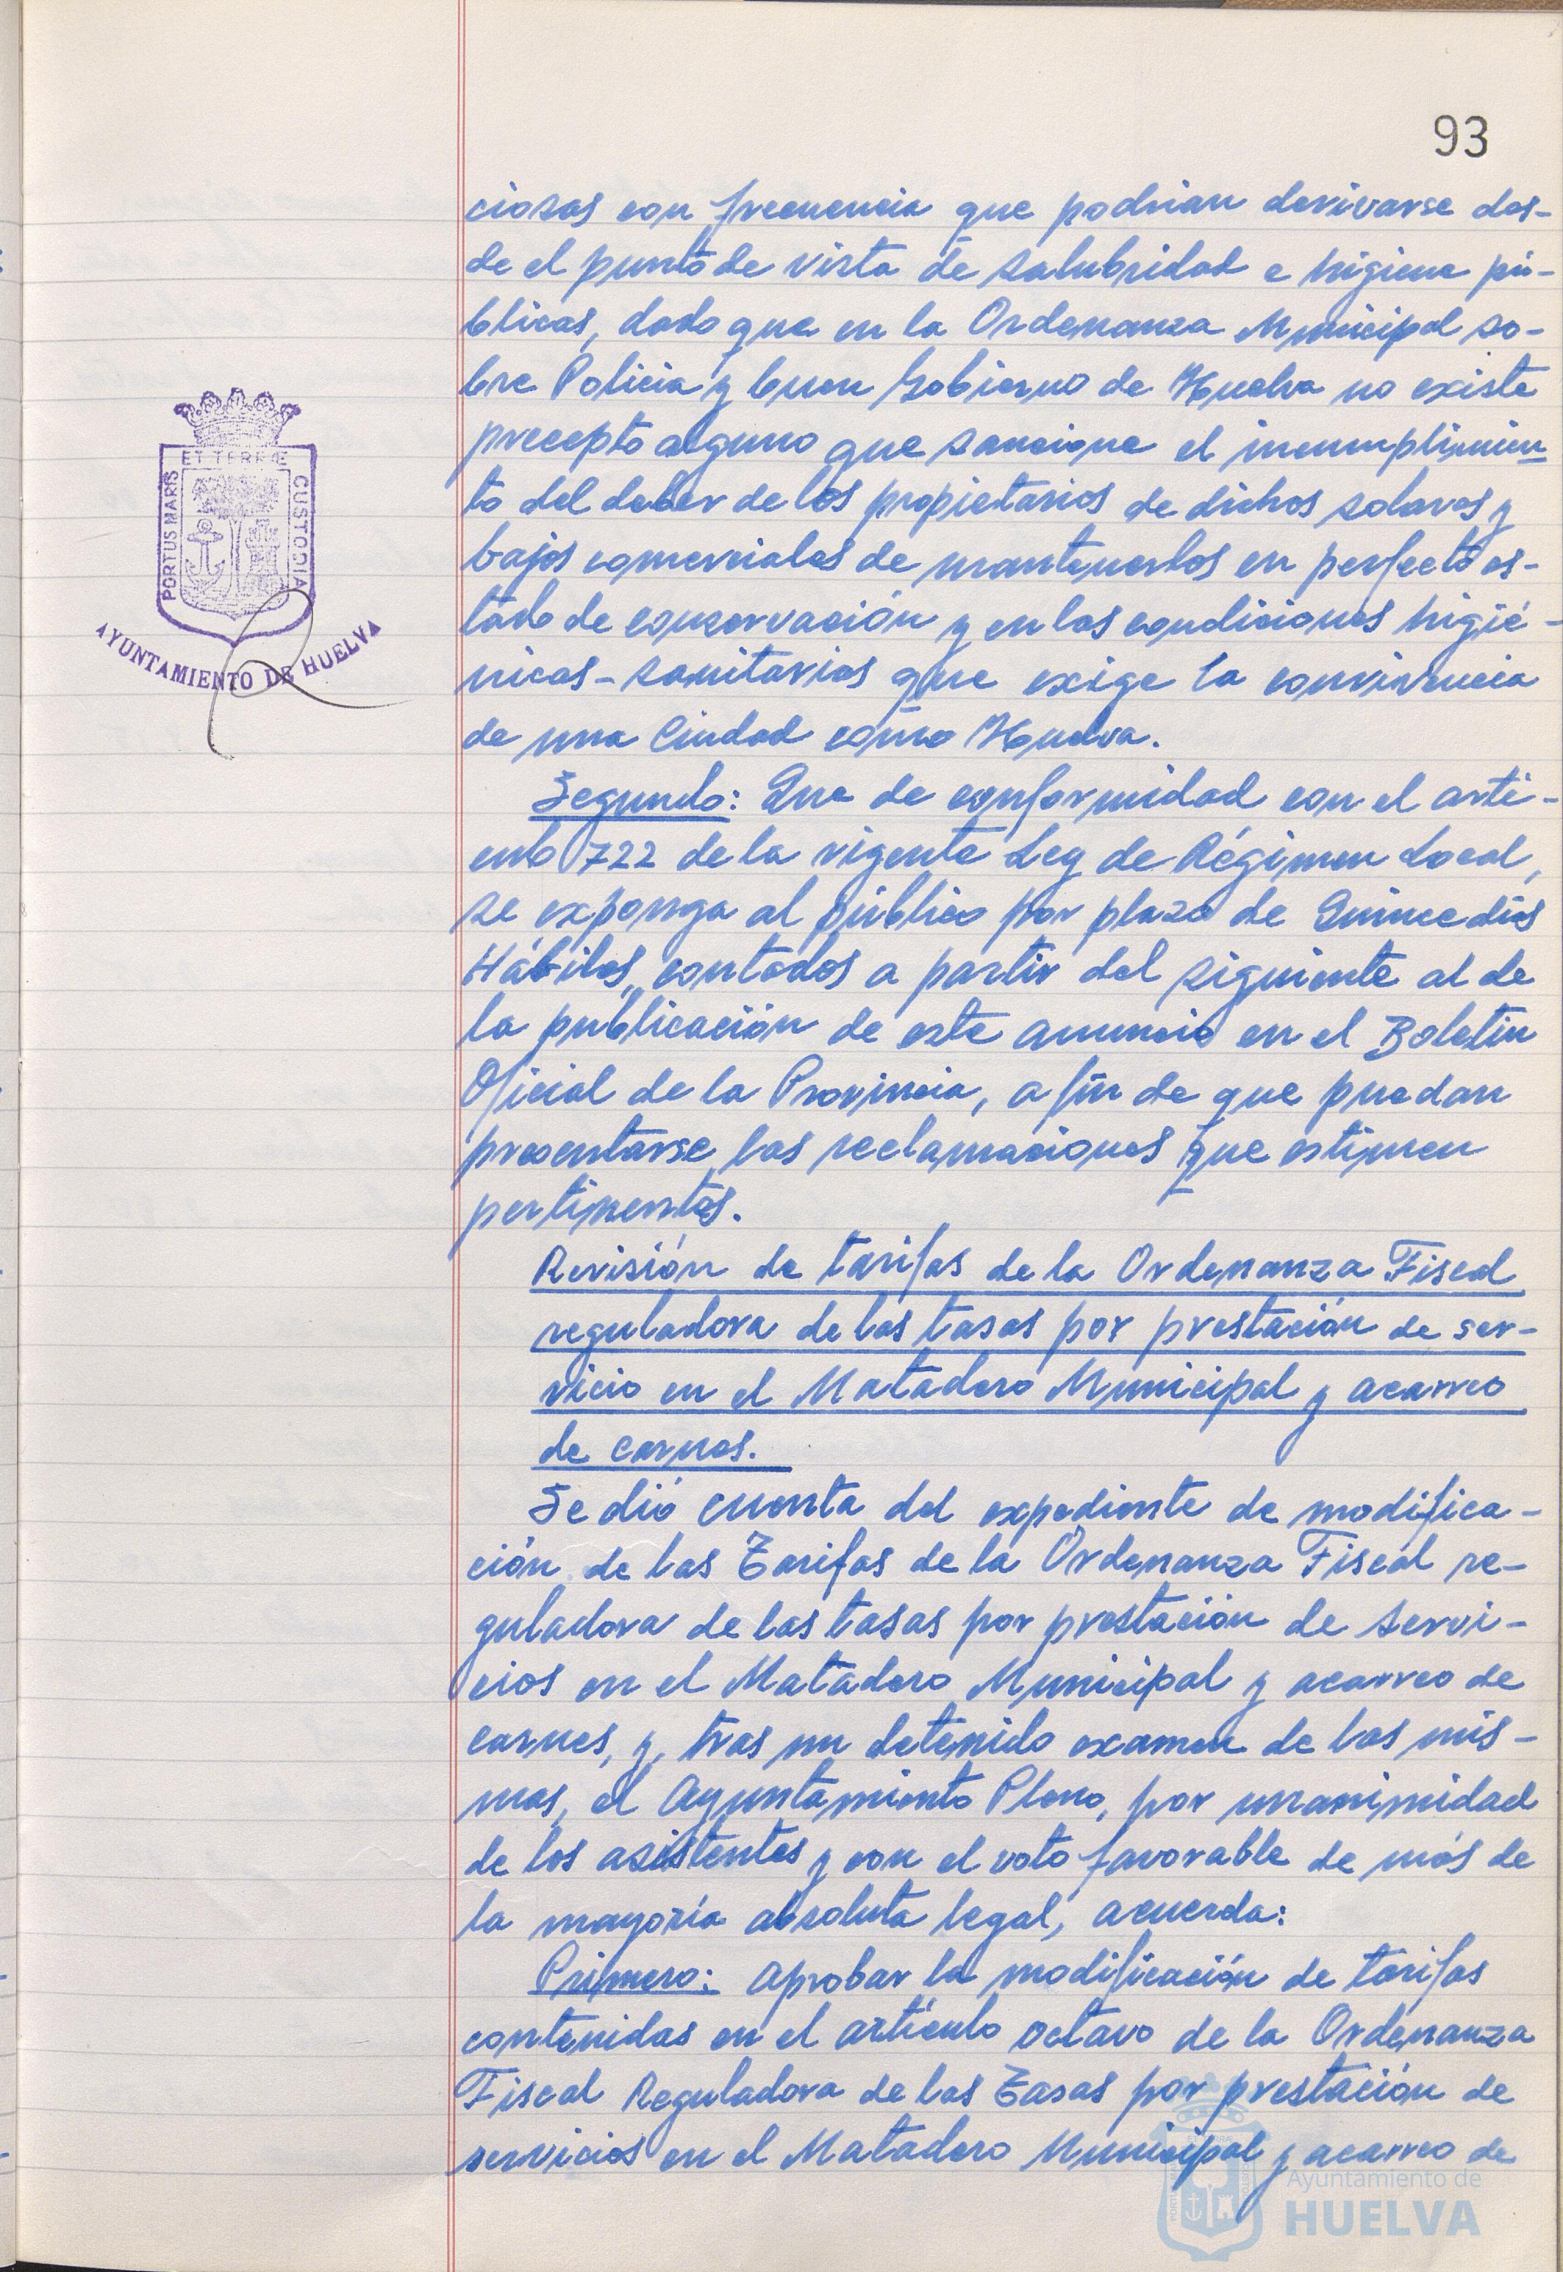 93
ciosas con frecuencia que podrian derivarse des-
de el punto de vista de salubridad e higiene pú-
blicas, dado que en la Ordenanza Municipal so-
bre Policia y buen Gobierno de Huelva no existe
precepto alguno que sancione el incumplimien-
to del deber de los propietarios de dichos solares y
bajos comerciales de mantenerlos en perfecto es-
tado de conservación y en las condiciones higié-
nicas-sanitarias que exige la convivencia
de una Ciudad como Huelva.
Segundo: Que de conformidad con el artí-
culo 722 de la vigente Ley de Régimen Local,
se exponga al público por plazo de Quince días
Hábiles, contados a partir del siguiente al de
la publicación de este anuncio en el Boletin
Oficial de la Provincia, a fin de que puedan
presentarse las reclamaciones que estimen
pertinentes.
Revisión de tarifas de la Ordenanza Fiscal
reguladora de las tasas por prestación de ser-
vicio en el Matadero Municipal y acarreo
de carnes.
Se dió cuenta del expediente de modifica-
ción de las Tarifas de la Ordenanza Fiscal re-
guladora de las tasas por prestación de servi-
cios en el Matadero Municipal y acarreo de
carnes, y, tras un detenido examen de las mis-
mas, el Ayuntamiento Pleno, por unanimidad
de los asistentes y con el voto favorable de más de
la mayoría absoluta legal, acuerda:
Primero: Aprobar la modificación de tarifas
contenidas en el artículo octavo de la Ordenanza
Fiscal Reguladora de las Tasas por prestación de
servicios en el Matadero Municipal y acarreo de
PORTUS MARIS
ET TERRÆ
CUSTODIA
AYUNTAMIENTO DE HUELVA
Ayuntamiento de
HUELVA